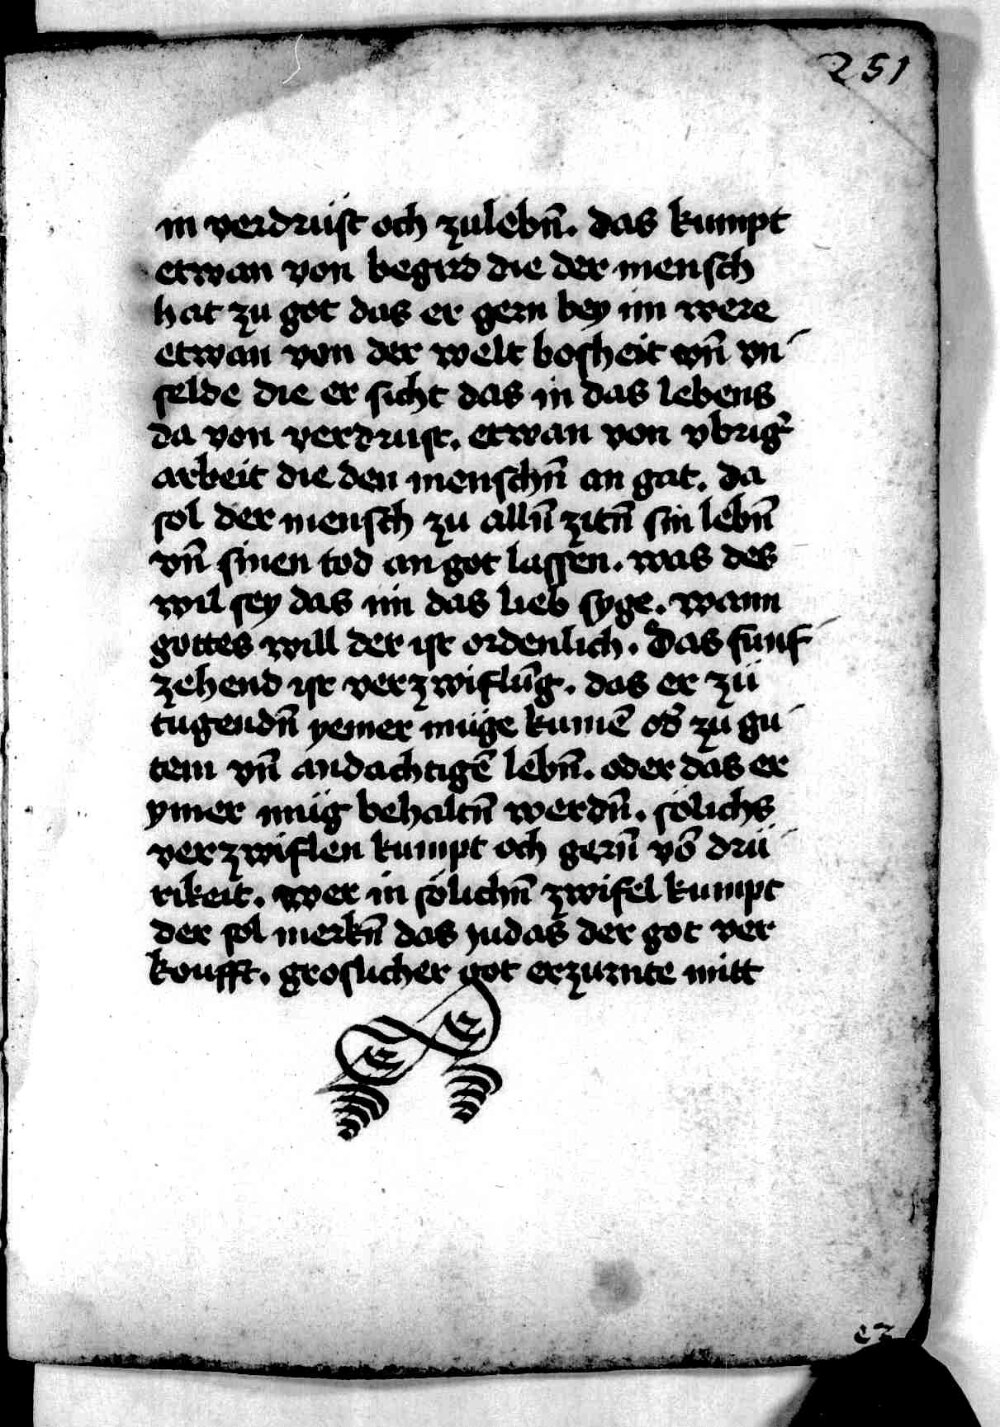 251
in verdrüst och zulebn̄. das kumpt
etwan von begird die der mensch
hat zu got das er gern bey im were
etwan von der welt bosheit vn̄ vn
selde die er sicht das in das lebens
da von verdrust. etwan von vbrigͬ
arbeit die den menschn̄ an gat. da
sol der mensch zu alln̄ zitn̄ sin lebn̄
vn̄ sinen tod an got lassen. was des
wil sey das im das lieb syge. wann
gottes will der ist ordenlich. Das funf
zehend ist verzwiflūg. das er zü
tugendn̄ yemer müge kumē od̄ zu gu
tem vn̄ andachtigē lebn̄. oder das er
ymer müg behaltn̄ werdn̄. sölichs
verzwiflen kumpt och gern̄ vō drü
rikeit. wer in sölichn̄ zwifel kumpt
der sol merkn̄ das yudas der got ver
koufft. groslicher got erzurnte mitt